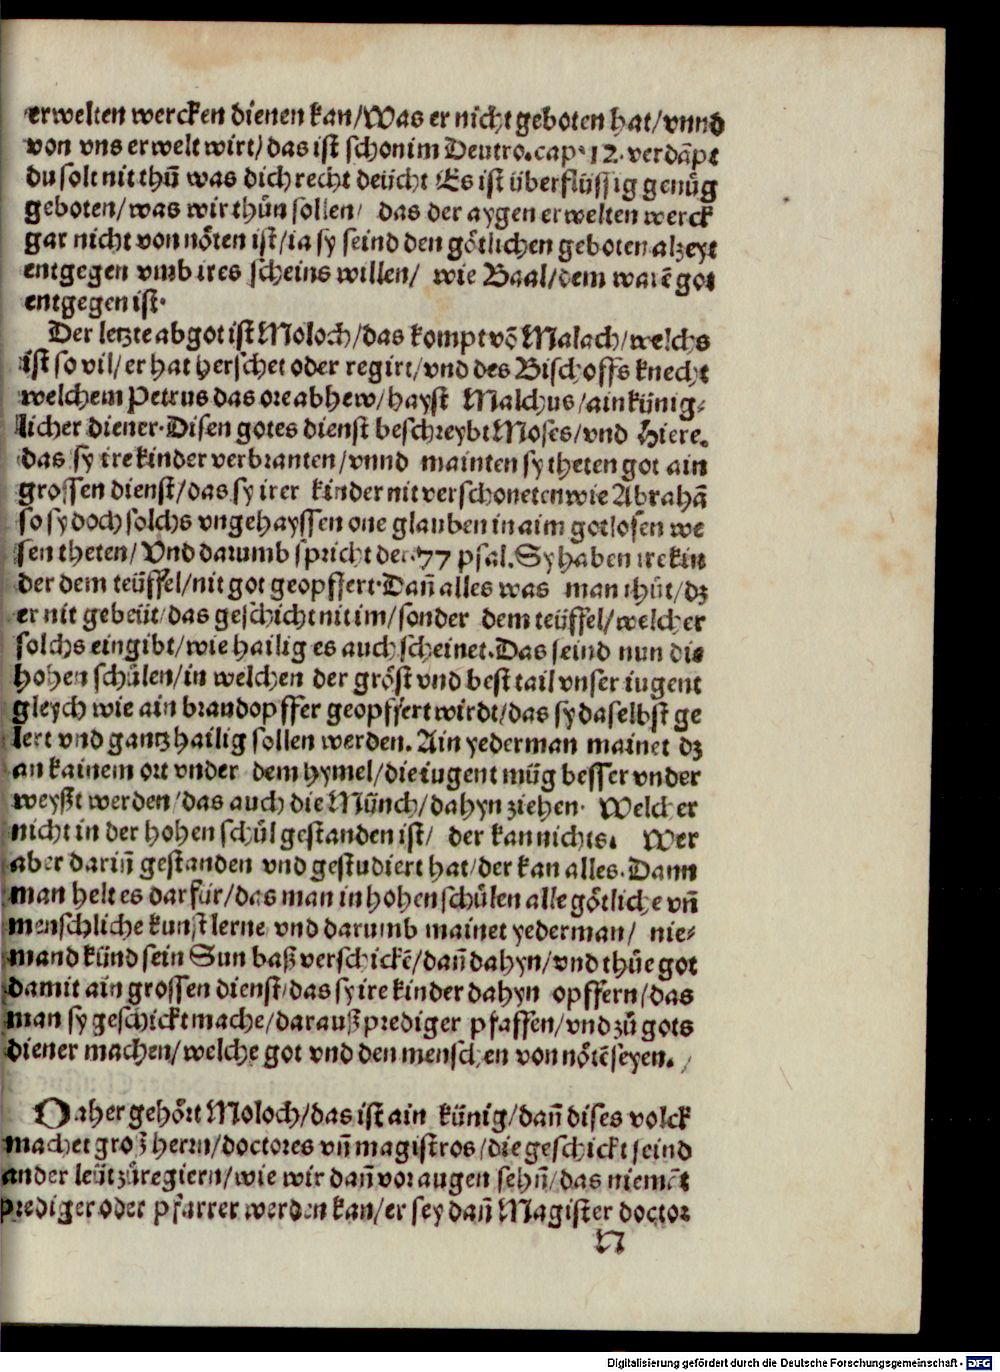 erwelten wercken dienen kan/Was er nicht geboten hat/vnnd
von vns erwelt wirt/das ist schon im Deutro.cap.12.verdāpt
du solt nit thů was dich recht deücht Es ist überflüssig genůg
geboten/was wir thůn sollen/ das der aygen erwelten werck
gar nicht von nöten ist/ia sy seind den götlichen geboten alzeyt
entgegen vmb ires scheins willen/ wie Baal/dem warē got
entgegen ist.
Der letzte abgot ist Moloch/das kompt vō Malach/welchs
ist so vil/er hat herschet oder regirt/vnd des Bischoffs knecht
welchem Petrus das ore abhew/hayst Malchus/ain künig⸗
licher diener.Disen gotes dienst beschreybt Moses/vnd Hiere.
das sy ire kinder verbranten/vnnd mainten sy theten got ain
grossen dienst/das sy irer kinder nit verschoneten wie Abrahā
so sy doch solchs vngehayssen one glauben in aim gotlosen we
sen theten/Vnd darumb spricht der.77 psal.Sy haben ire kin
der dem teüffel/nit got geopffert.Dañ alles was man thůt/dz
er nit gebeüt/das geschicht nit im/sonder dem teüffel/welcher
solchs eingibt/wie hailig es auch scheinet.Das seind nun die
hohen schůlen/in welchen der gröst vnd best tail vnser iugent
gleych wie ain brandopffer geopffert wirdt/das sy daselbst ge
lert vnd gantz hailig sollen werden. Ain yederman mainet dz
an kainem ort vnder dem hymel/die iugent müg besser vnder
weyßt werden/das auch die Münch/dahyn ziehen. Welcher
nicht in der hohen schůl gestanden ist/ der kan nichts. Wer
aber dariñ gestanden vnd gestudiert hat/der kan alles.Dann
man helt es darfür/das man in hohen schůlen alle götliche vñ
menschliche kunst lerne vnd darumb mainet yederman/ nie⸗
mand künd sein Sun baß verschickē/dañ dahyn/vnd thůe got
damit ain grossen dienst/das sy ire kinder dahyn opffern/das
man sy geschickt mache/darauß prediger pfaffen/vnd zů gots
diener machen/welche got vnd den menschen von nötē seyen.
Daher gehört Moloch/das ist ain künig/dañ dises volck
machet groß herrn/doctores vñ magistros/die geschickt seind
ander leüt zů regiern/wie wir dañ vor augen sehñ/das niemāt
prediger oder pfarrer werden kan/er sey dañ Magister doctor
N
Digitalisierung gefördert durch die Deutsche Forschungsgemeinschaft - DFG